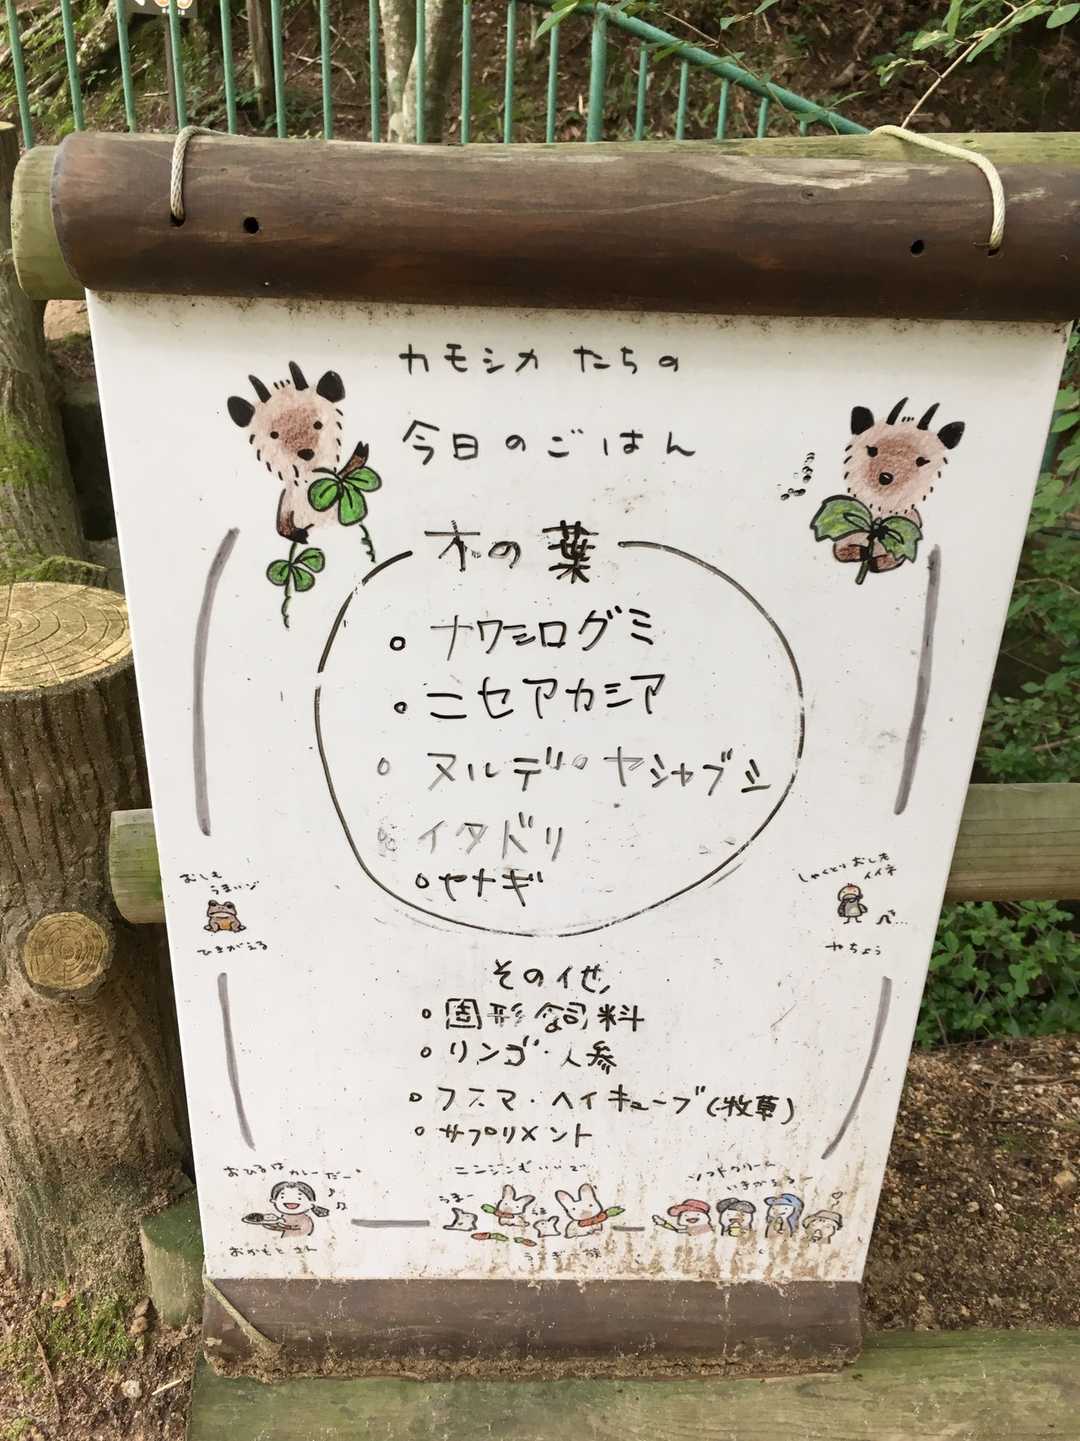 カモシカ たちの
今日のごはん
木の葉
○ ナワシログミ
○ ニセアカシア
○ ヌルデ・ヤシャブシ
○ イタドリ
○ ヤナギ
おしも
うまいゾ
ひきがえる
しゃくとりおしも
イイネ
やちょう
その他
○ 固形飼料
○ リンゴ・人参
○ フスマ・ヘイキューブ(牧草)
○ サプリメント
おひるは
カレーだー
おかもとさん
うまー
ソフトクリーム